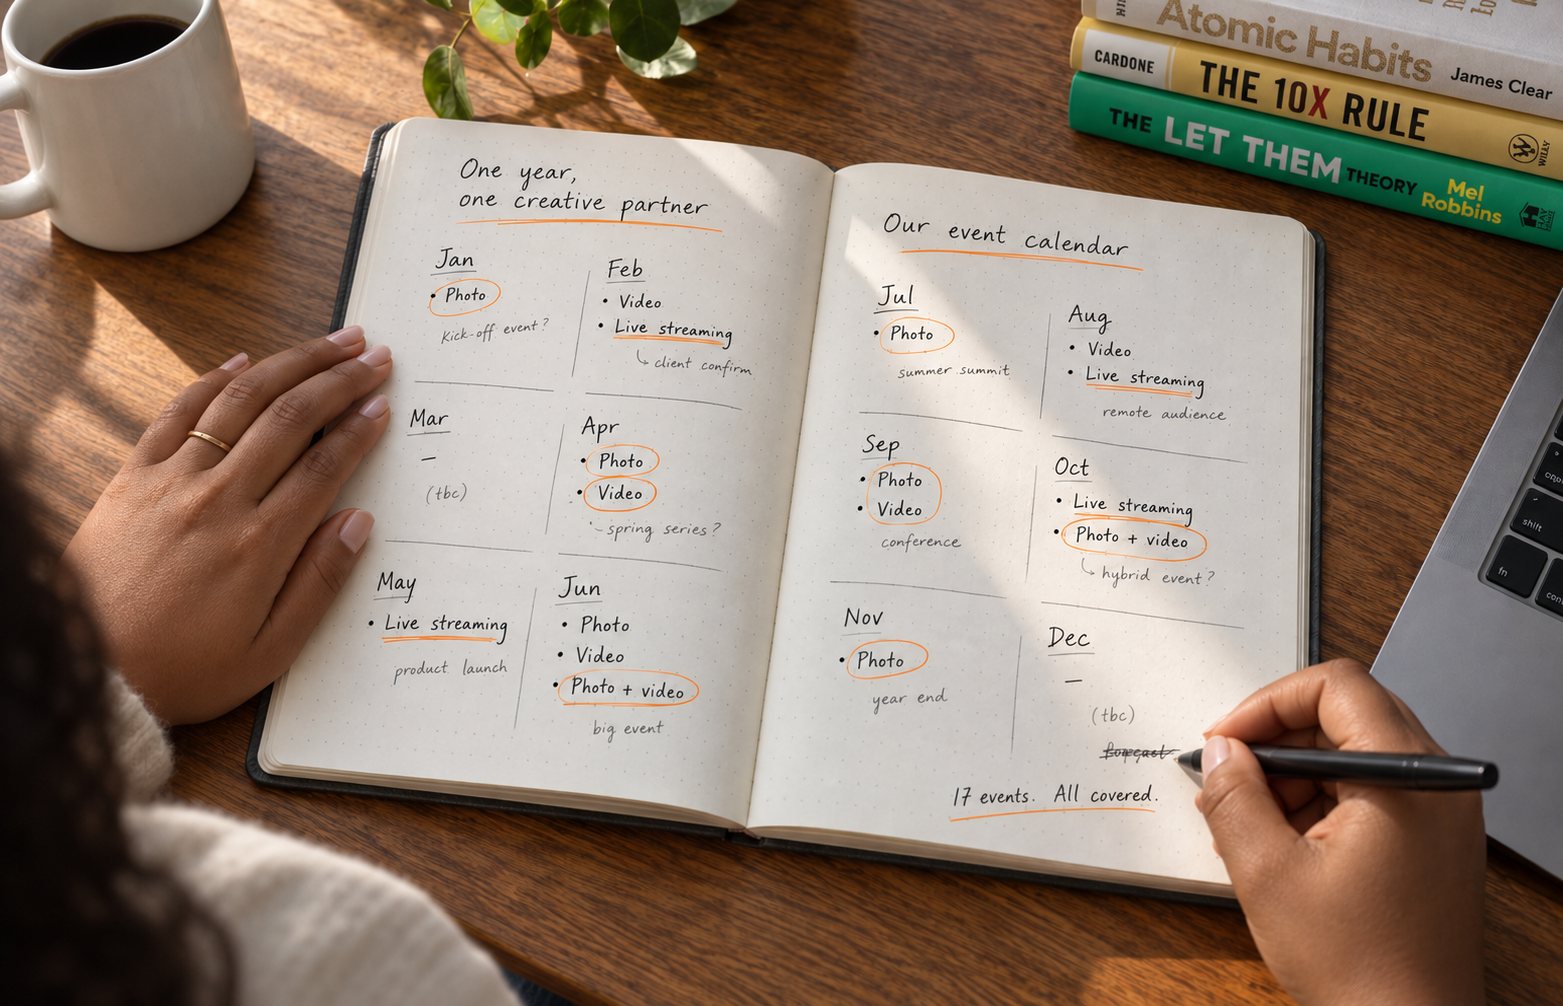 Atomic Habits James Clear
CARDONE THE 10X RULE WILEY
THE LET THEM THEORY Mel Robbins HAY HOUSE
One year,
one creative partner
Jan
• Photo
Kick-off event?
Feb
• Video
• Live streaming
client confirm
Mar
–
(tbc)
Apr
• Photo
• Video
spring series?
May
• Live streaming
product launch
Jun
• Photo
• Video
• Photo + video
big event
Our event calendar
Jul
• Photo
summer summit
Aug
• Video
• Live streaming
remote audience
Sep
• Photo
• Video
conference
Oct
• Live streaming
• Photo + video
hybrid event?
Nov
• Photo
year end
Dec
–
(tbc)
17 events. All covered.
shift
fn